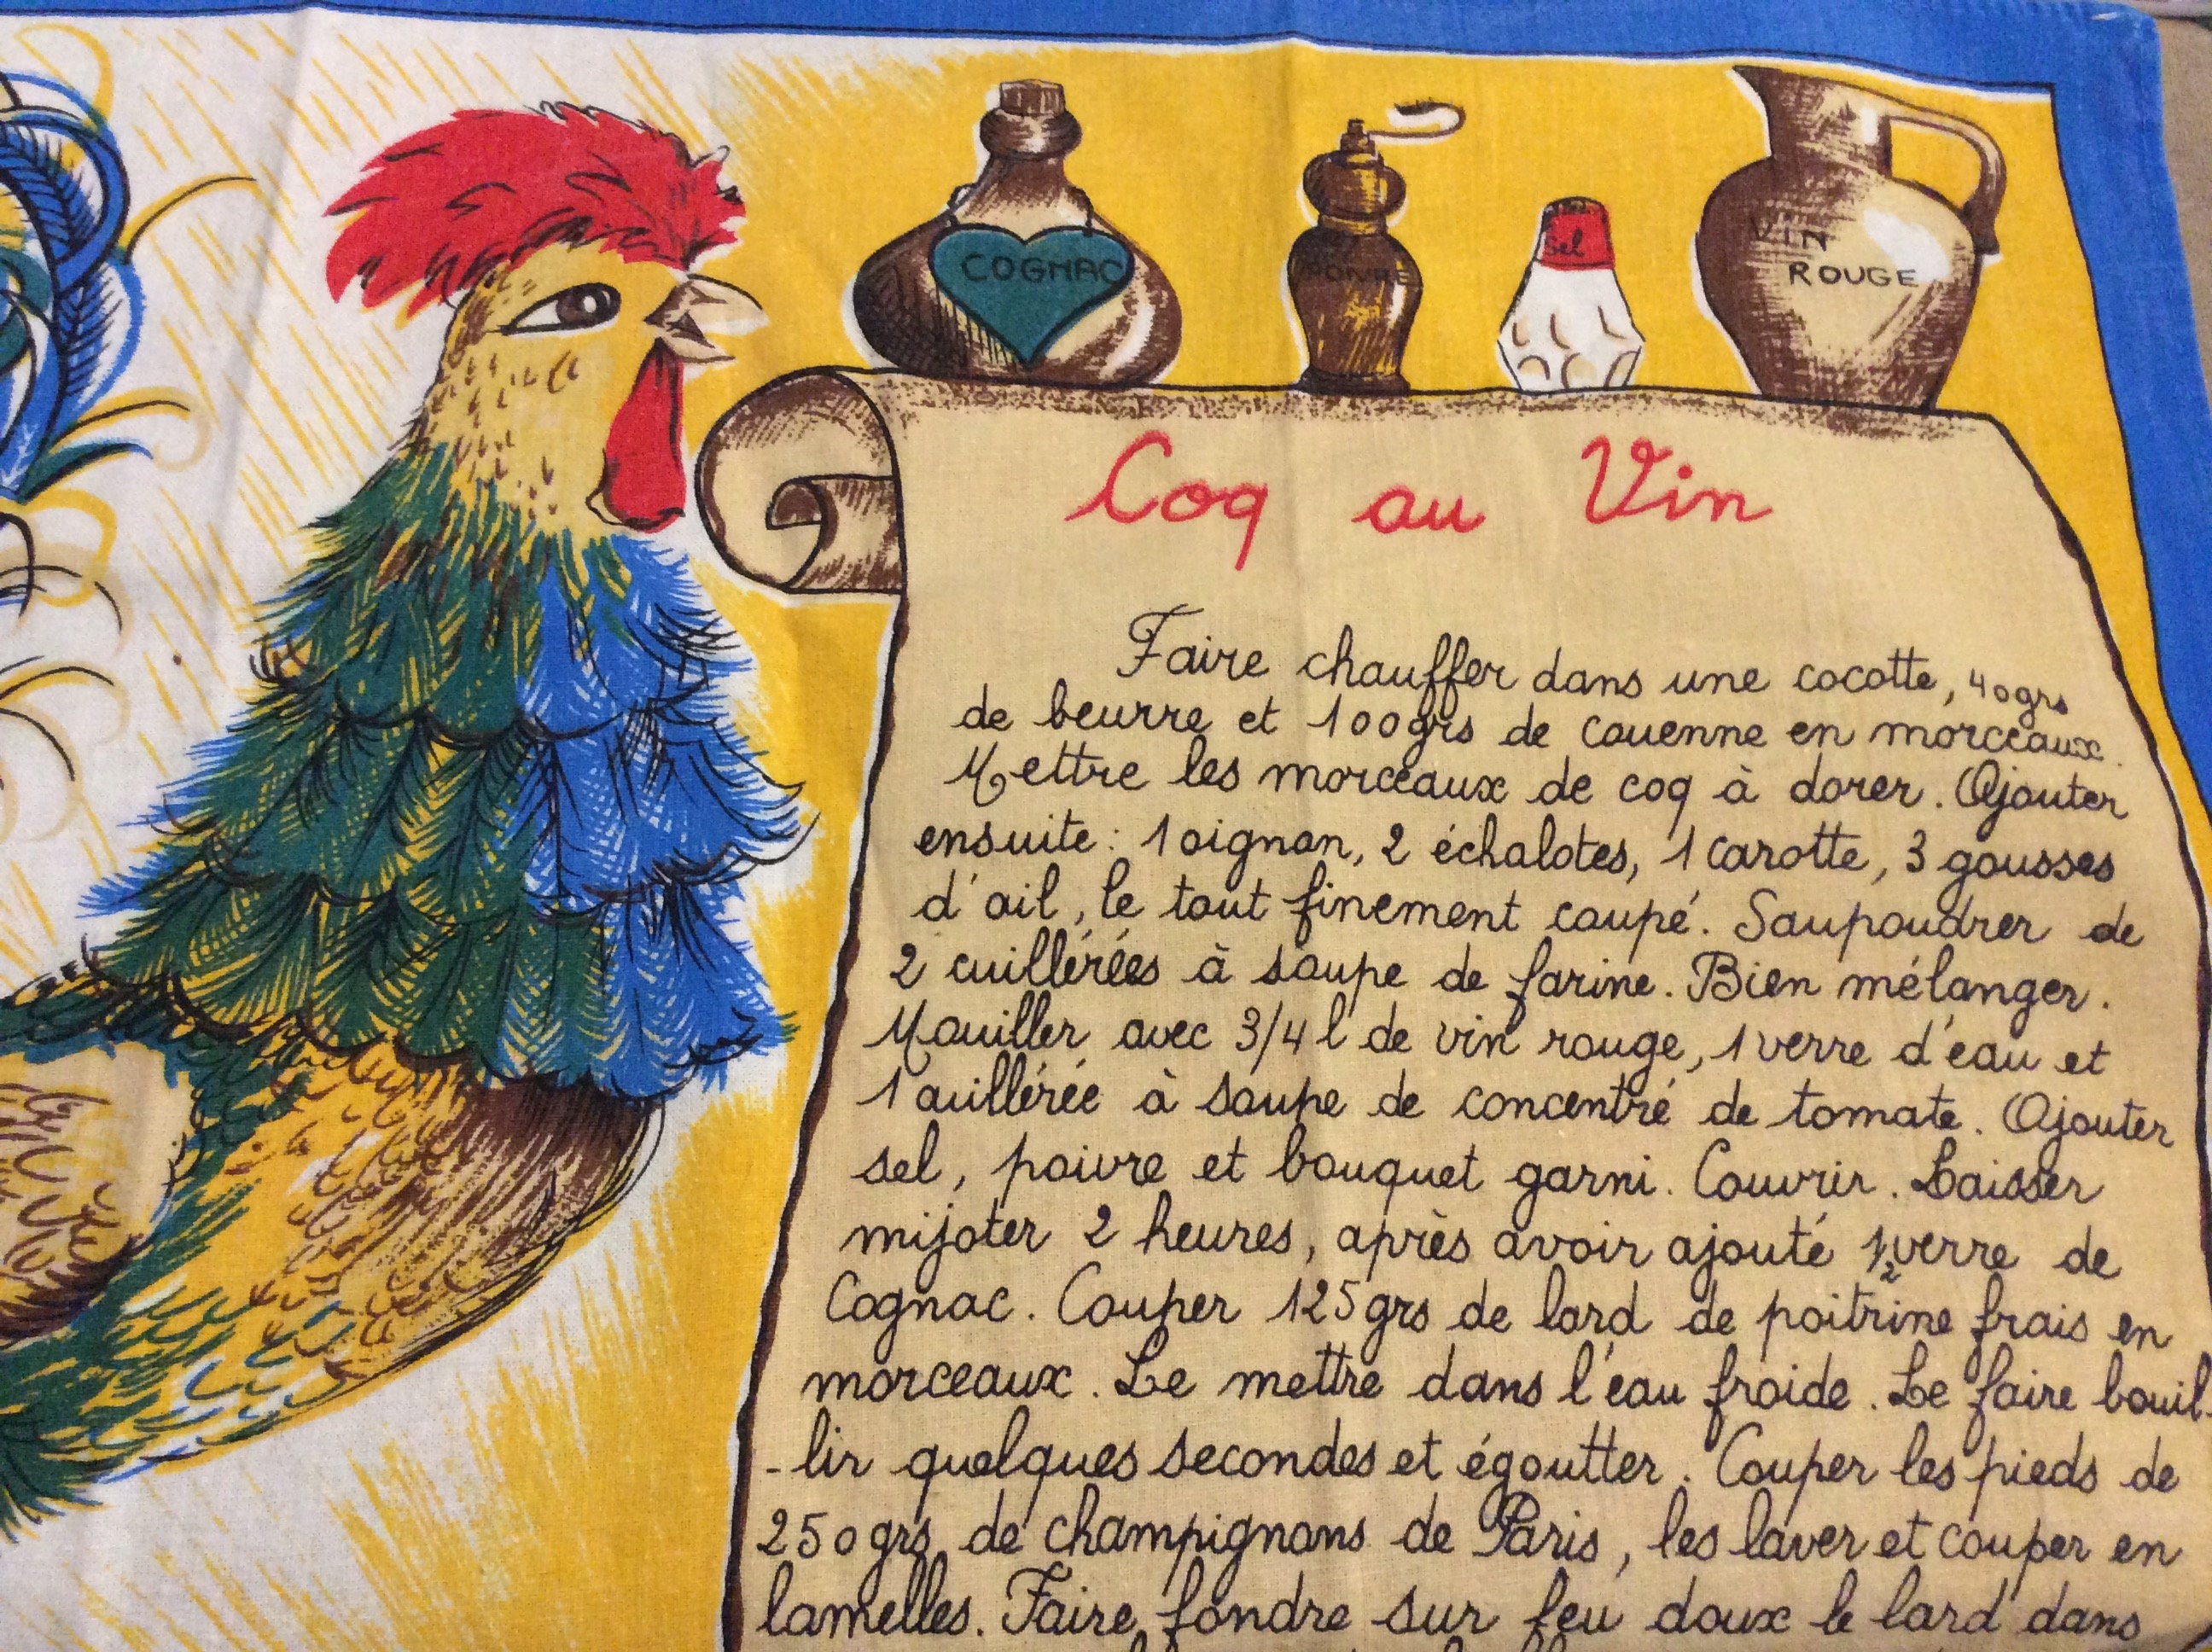 COGNAC
POIVRE
Sel
VIN
ROUGE
Coq au Vin
Faire chauffer dans une cocotte, 40grs
de beurre et 100grs de couenne en morceaux.
Mettre les morceaux de coq à dorer. Ajouter
ensuite : 1 oignon, 2 échalotes, 1 carotte, 3 gousses
d'ail, le tout finement coupé. Saupoudrer de
2 cuillérées à soupe de farine. Bien mélanger.
Mouiller avec 3/4 l de vin rouge, 1 verre d'eau et
1 cuillérée à soupe de concentré de tomate. Ajouter
sel, poivre et bouquet garni. Couvrir. Laisser
mijoter 2 heures, après avoir ajouté 1/2 verre de
Cognac. Couper 125grs de lard de poitrine frais en
morceaux. Le mettre dans l'eau froide. Le faire bouil-
-lir quelques secondes et égoutter. Couper les pieds de
250grs de champignons de Paris, les laver et couper en
lamelles. Faire fondre sur feu doux le lard dans